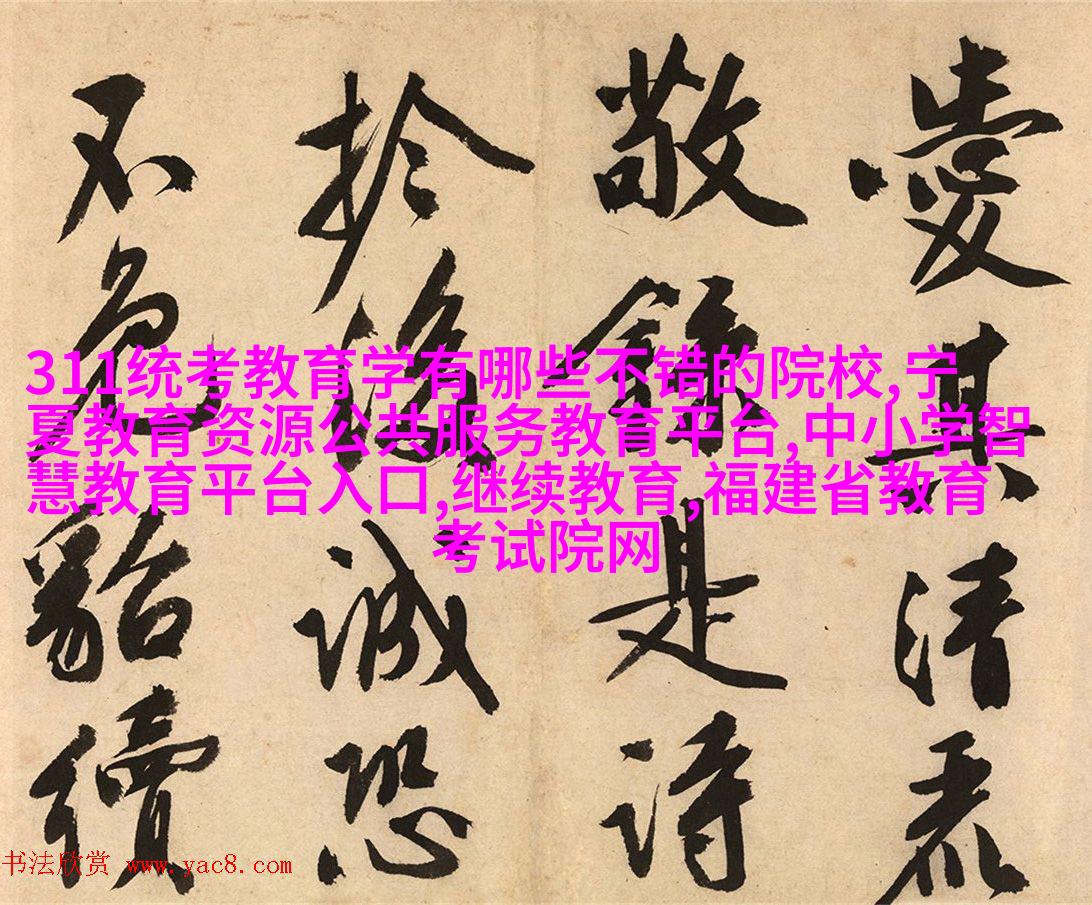 愛其清麗
敬錄是詩
於後誠恐
不免貂續
311统考教育学有哪些不错的院校,宁
夏教育资源公共服务教育平台,中小学智
慧教育平台入口,继续教育,福建省教育
考试院网
书法欣赏 www.yac8.com